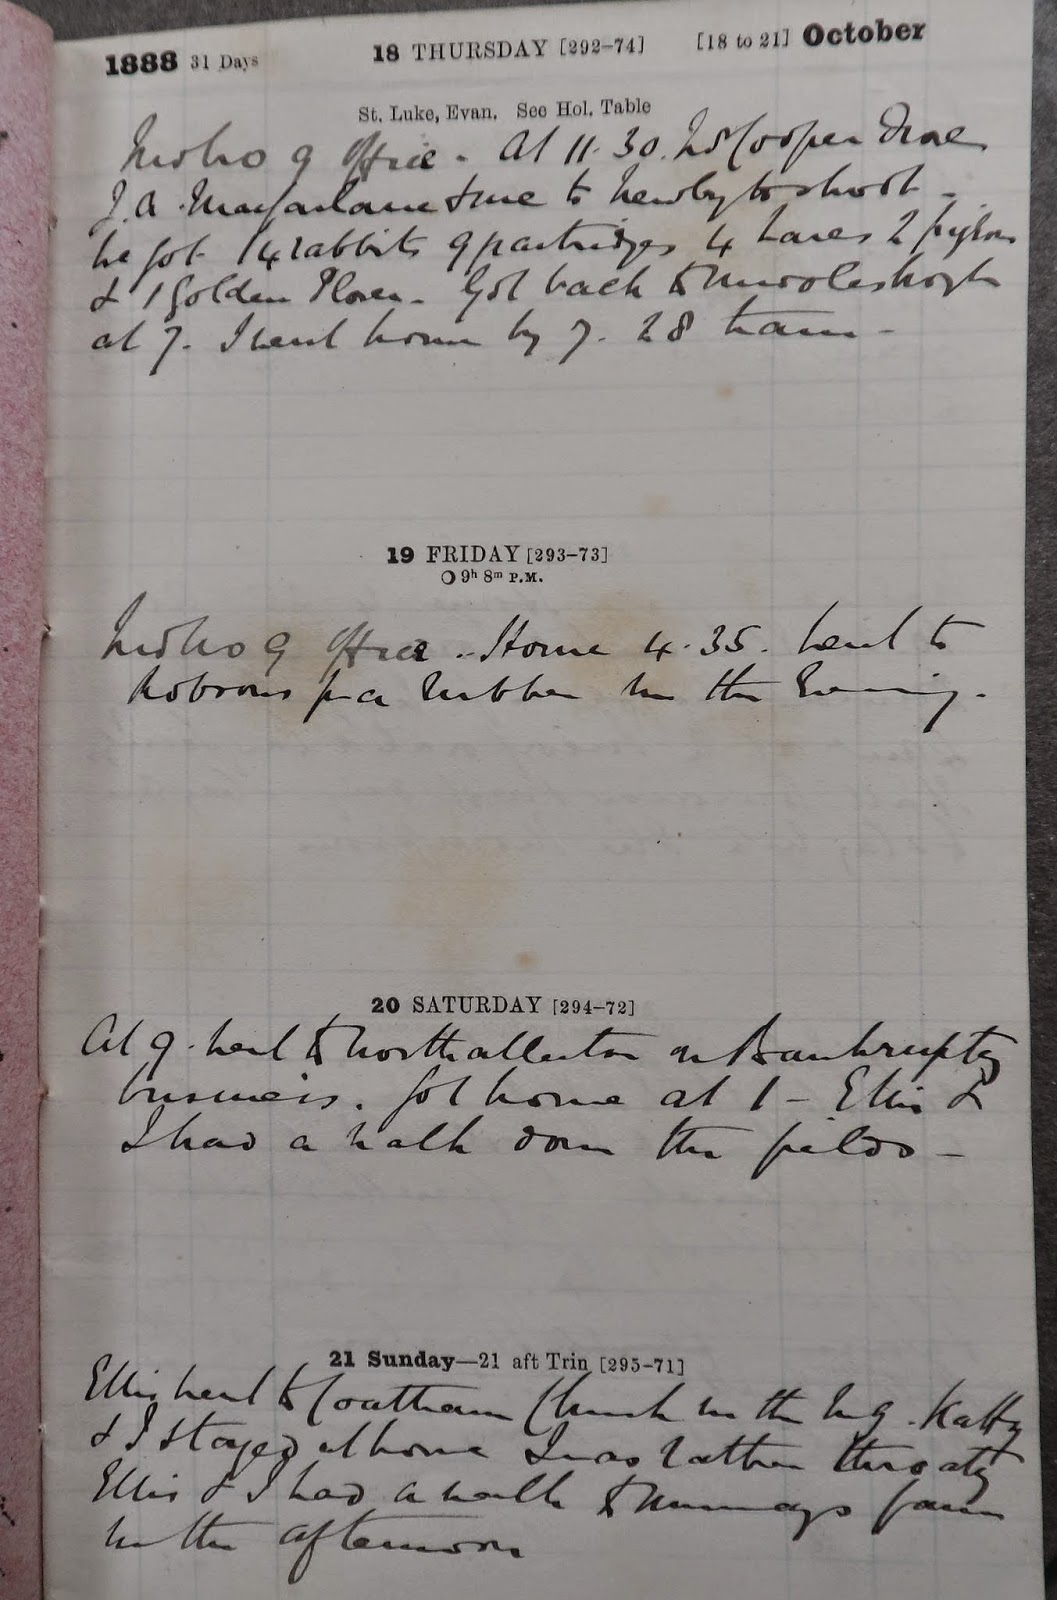 1888 31 Days 18 THURSDAY [292–74] [18 to 21] October
St. Luke, Evan. See Hol. Table
9 Office. At 11.30. Cooper Drove
J. A. Macfarlane & me to Newby to shoot –
We got 14 rabbits 9 partridges 4 hares 2 pigeons
& 1 Golden Plover. Got back to Middlesbrough
at 7. I went home by 7.28 train –
19 FRIDAY [293–73]
9h 8m P.M.
9 Office. Home 4.35. Went to
Robsons for a Rubber in the Evening.
20 SATURDAY [294–72]
At 9. went to Northallerton on Bankruptcy
business. Got home at 1 – Ellis &
I had a walk down the fields –
21 Sunday—21 aft Trin [295–71]
Ellis went to Coatham Church in the Mg. Katty
& I stayed at home I was rather throaty
Ellis & I had a walk to farm
in the afternoon